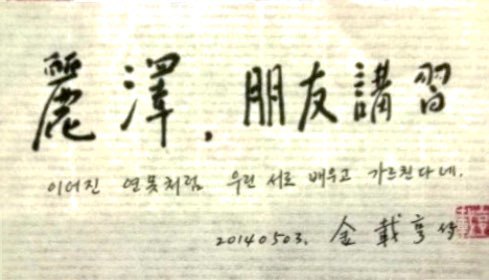 麗澤, 朋友講習
이어진 연못처럼 우린 서로 배우고 가르친다네.
20140503. 金載亨